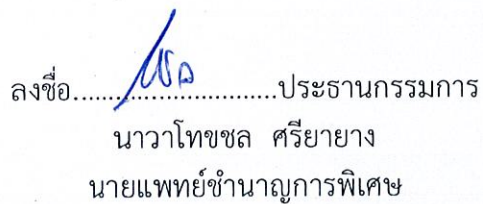 ลงชื่อ..............................ประธานกรรมการ
นาวาโทขชล ศรียายาง
นายแพทย์ชำนาญการพิเศษ